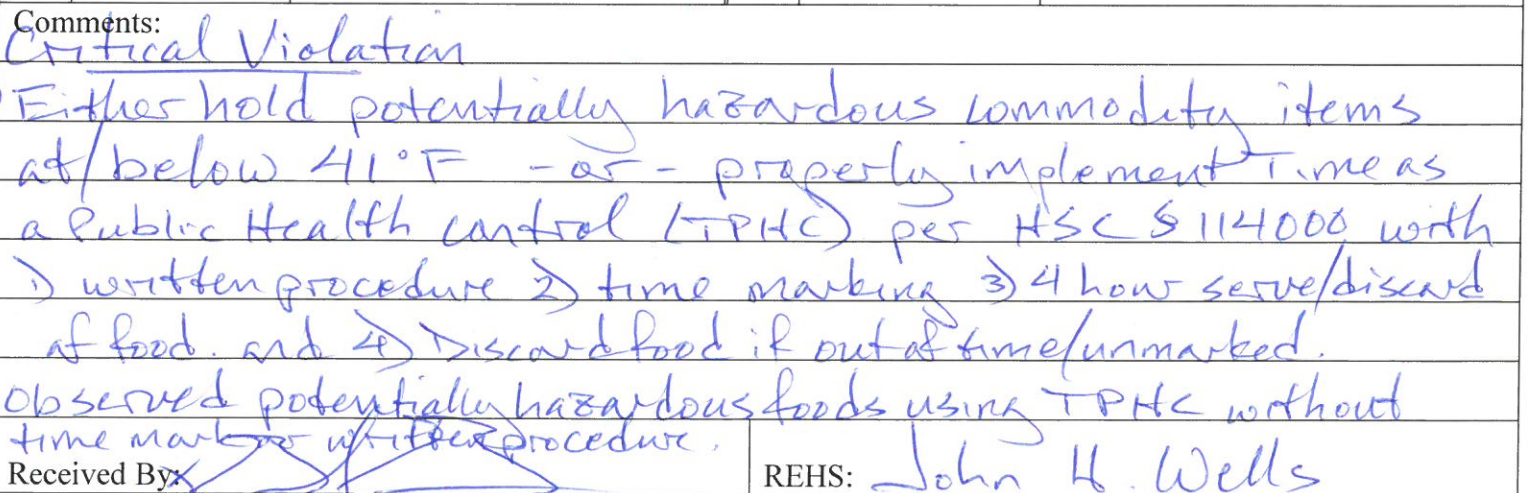 Comments:
Critical Violation
Either hold potentially hazardous commodity items
at/below 41°F - or - properly implement Time as
a Public Health control (TPHC) per HSC § 114000 with
1) written procedure 2) time marking 3) 4 hour serve/discard
of food. and 4) Discard food if out of time/unmarked.
Observed potentially hazardous foods using TPHC without
time mark or written procedure.
Received By: REHS: John H. Wells